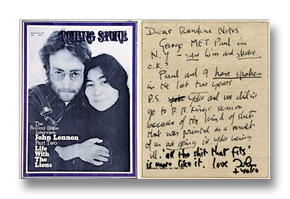 ROLLING STONE
The
Rolling Stone
Interview
John Lennon
Part Two
Life
With The
Lions
Dear Random Notes
George MET Paul in
N.Y. – him and spoke.
O.K.?
Paul and I have spoken
in the last two years
P.S. Yoko and me didn't
go to B.B. Kings session
because of the kind of shit
that was printed as a result
of us
'all the shit that fits'
is more like it. love John
+ Yoko